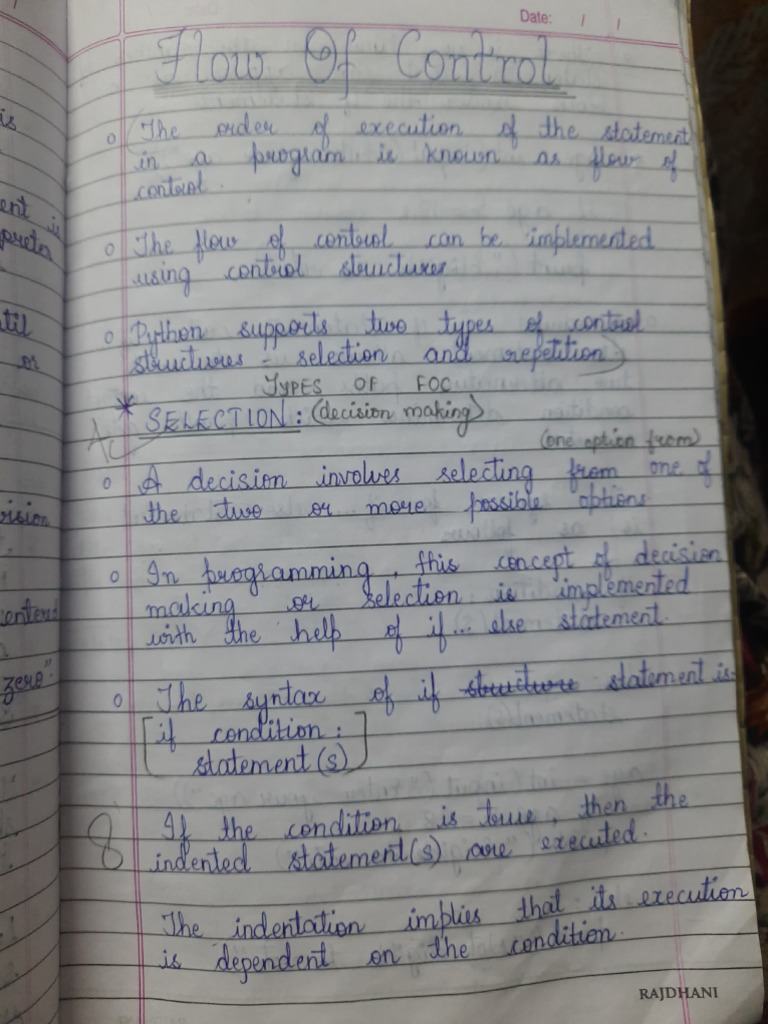 Date: / /
Flow Of Control
The order of execution of the statement
in a program is known as flow of
control.
The flow of control can be implemented
using control structures
Python supports two types of control
structures - selection and repetition
TYPES OF FOC
* SELECTION: (decision making)
(one option from)
A decision involves selecting from one of
the two or more possible options
In programming, this concept of decision
making or selection is implemented
with the help of if... else statement.
The syntax of if structure statement is:
if condition:
statement(s)
8
If the condition is true, then the
indented statement(s) are executed.
The indentation implies that its execution
is dependent on the condition.
RAJDHANI
is
ent is
til
or
zero"